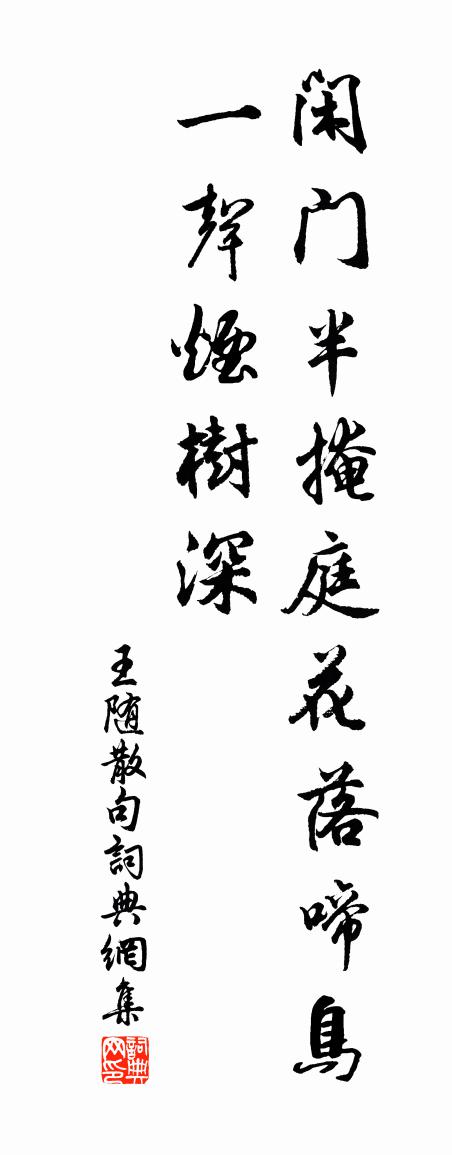 閑门半掩庭花落啼鳥
一聲煙樹深
王随散句詞典網集
詞典网印